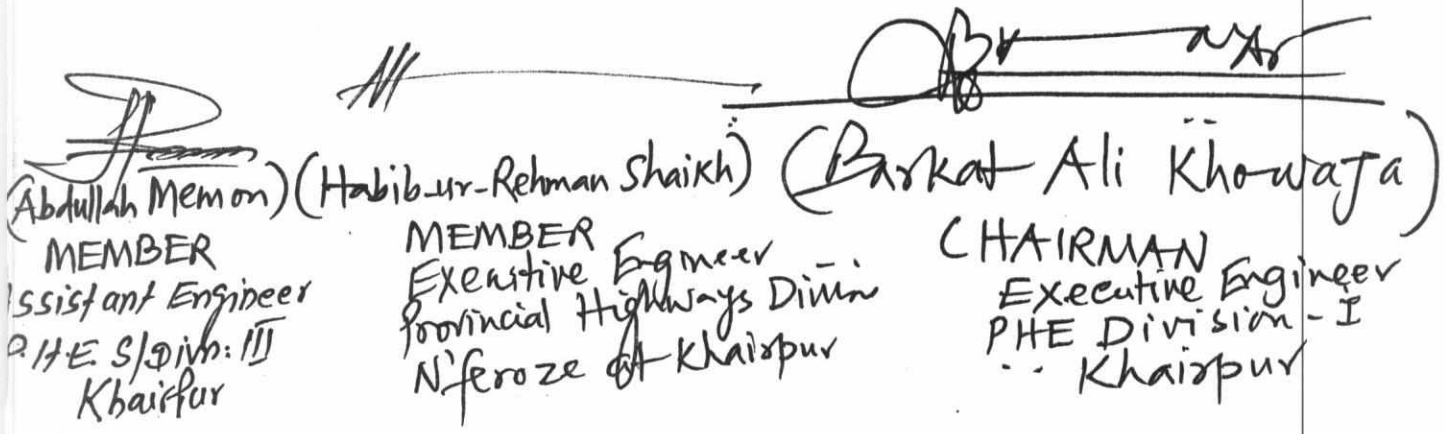 (Abdullah Memon)
MEMBER
ssistant Engineer
P.H.E. S/Divn: III
Khairpur
(Habib-ur-Rehman Shaikh)
MEMBER
Executive Engineer
Provincial Highways Divin
N'feroze at Khairpur
(Barkat Ali Khowaja)
CHAIRMAN
Executive Engineer
PHE Division - I
Khairpur